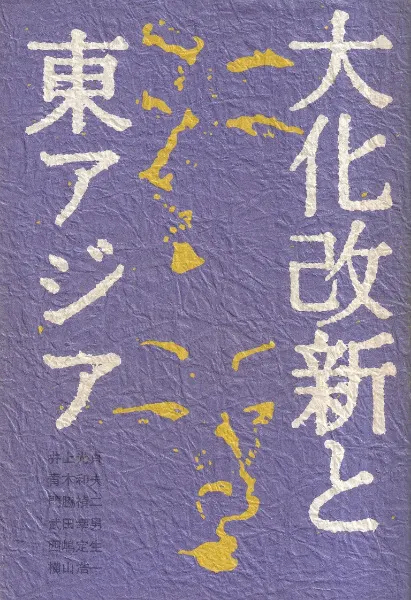 大化改新と
東アジア
井上光貞
青木和夫
門脇禎二
武田幸男
西嶋定生
横山浩一